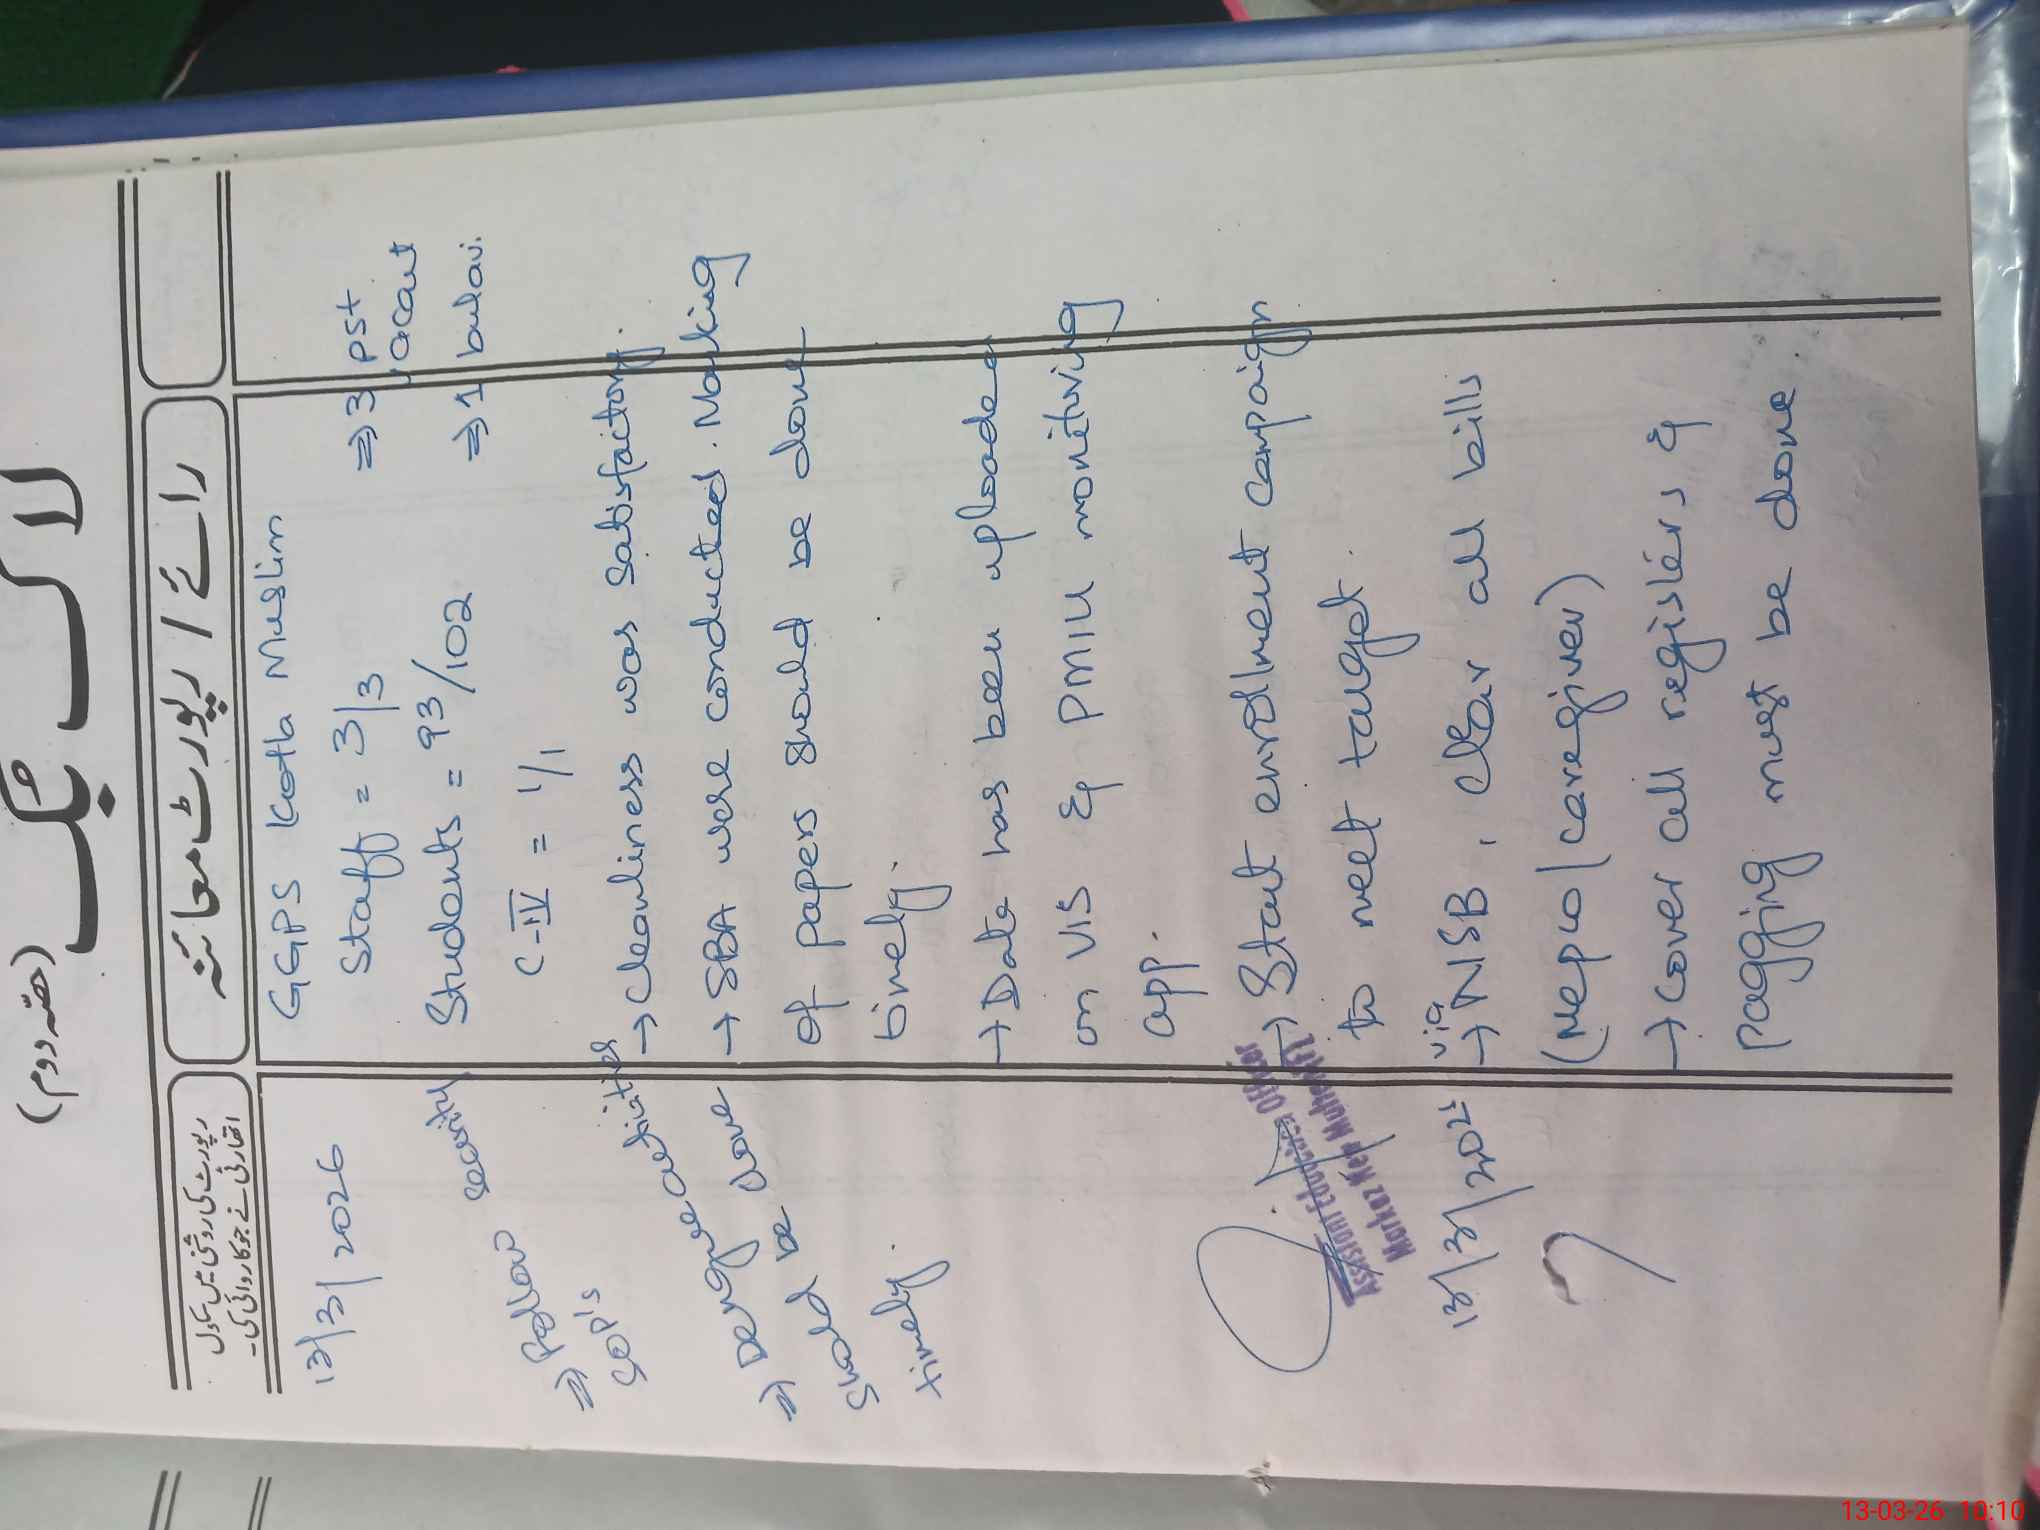 لاگ بک
(حصّہ دوم)
رائے / رپورٹ معائنہ
رپورٹ کی روشنی میں سکول
اتھارٹی نے جو کارروائی کی۔
13/3/2026
GGPS Kotla Muslim
Staff = 3/3
⇒ 3 PST
vacant
Students = 93/102
⇒ 1
C-IV = 1/1
→ Cleanliness was satisfactory.
→ SBA were conducted. Marking
of papers should be done
timely.
→ Data has been uploaded
on VIS & PMIU monitoring
app.
→ Start enrollment campaign
to meet target.
via
→ NSB, clear all bills
(Mepco/caregiver)
→ cover all registers &
pagging must be done.
⇒ Follow security
SOP's
⇒ Dengue activities
should be done
timely.
Assistant Education Officer
Markaz New Multan
13/3/202
13-03-26 10:10